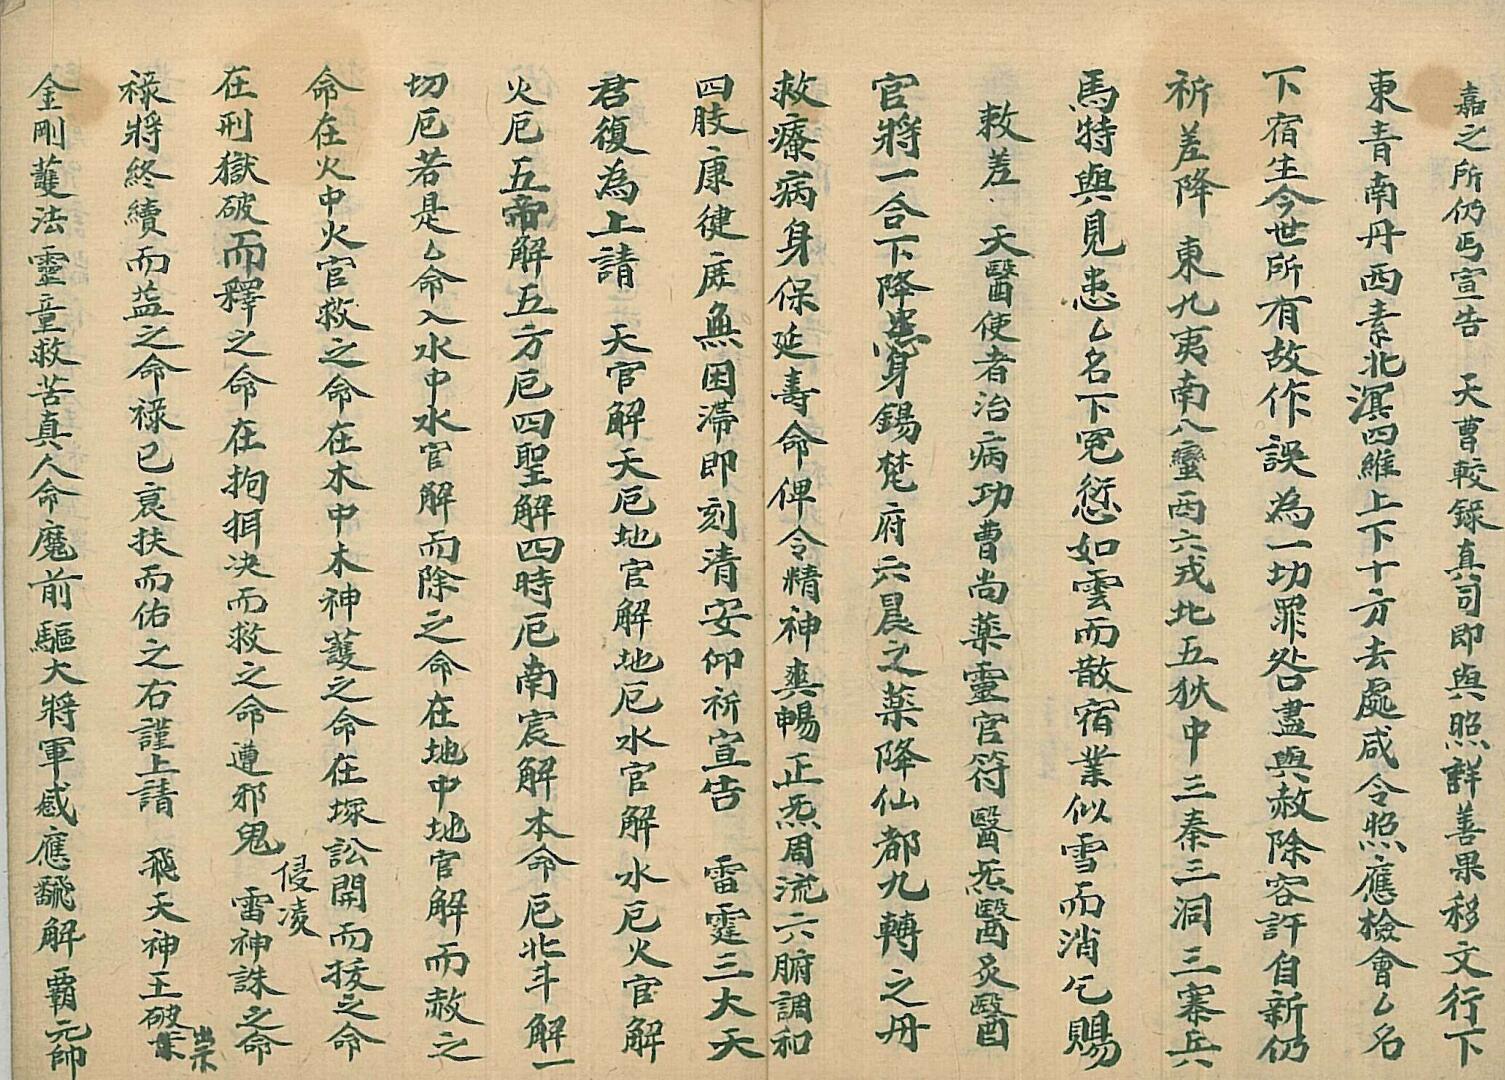 嘉之所仍丐宣告　天曹較錄真司即與照詳善果移文行下
東青南丹西素北溟四維上下十方去處咸令照應檢會厶名
下宿生今世所有故作誤為一切罪咎盡與赦除容許自新仍
祈差降　東九夷南八蠻西六戎北五狄中三秦三洞三寨兵
馬特與見患厶名下冤愆如雲而散宿業似雪而消乞賜
敕差　天醫使者治病功曹尚藥靈官符醫炁醫灸醫
官將一合下降患身錫梵府六晨之藥降仙都九轉之丹
救療病身保延壽命俾令精神爽暢正炁周流六腑調和
四肢康健庶無困滯即刻清安仰祈宣告　雷霆三大天
君復為上請　天官解天厄地官解地厄水官解水厄火官解
火厄五帝解五方厄四聖解四時厄南宸解本命厄北斗解一
切厄若是厶命入水中水官解而除之命在地中地官解而赦之
命在火中火官救之命在木中木神護之命在塚訟開而拔之命
在刑獄破而釋之命在拘抯決而救之命遭邪鬼侵凌　雷神誅之命
祿將終續而益之命祿已衰扶而佑之右謹上請　飛天神王破祟
金剛護法靈童救苦真人命魔前驅大將軍感應飜解霸元帥